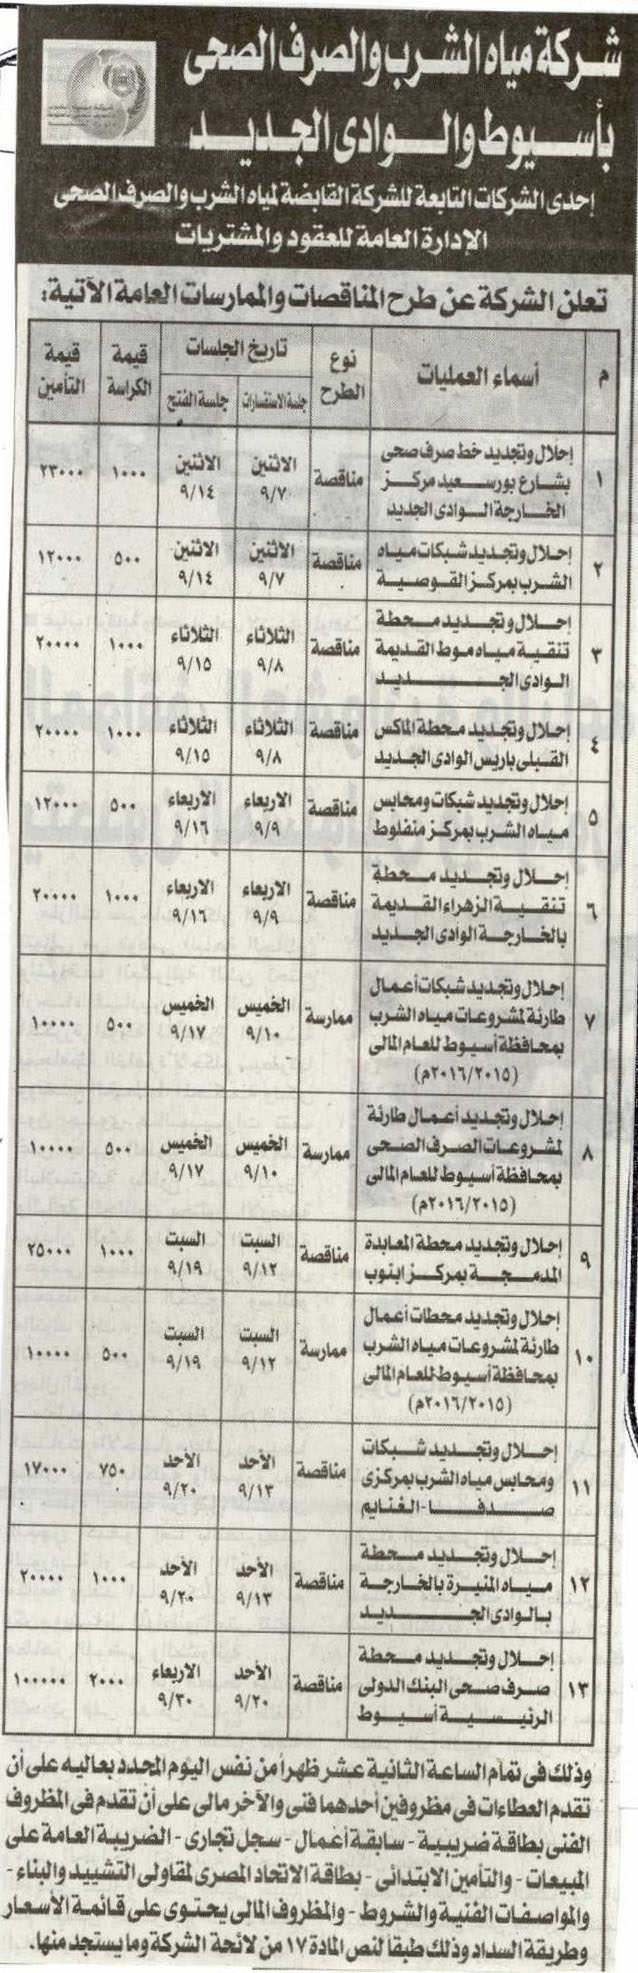 شركة مياه الشرب والصرف الصحى
بأسيوط والوادى الجديد
إحدى الشركات التابعة للشركة القابضة لمياه الشرب والصرف الصحى
الإدارة العامة للعقود والمشتريات
تعلن الشركة عن طرح المناقصات والممارسات العامة الآتية:
م
أسماء العمليات
نوع
الطرح
تاريخ الجلسات
جلسة الاستفسارات
جلسة الفتح
قيمة
الكراسة
قيمة
التأمين
١
إحلال وتجديد خط صرف صحى
بشارع بورسعيد مركز
الخارجة الوادى الجديد
مناقصة
الاثنين
٩/٧
الاثنين
٩/١٤
١٠٠٠
٢٣٠٠٠
٢
إحلال وتجديد شبكات مياه
الشرب بمركز القوصية
مناقصة
الاثنين
٩/٧
الاثنين
٩/١٤
٥٠٠
١٢٠٠٠
٣
إحلال وتجديد محطة
تنقية مياه موط القديمة
الوادى الجديد
مناقصة
الثلاثاء
٩/٨
الثلاثاء
٩/١٥
١٠٠٠
٢٠٠٠٠
٤
إحلال وتجديد محطة الماكس
القبلى باريس الوادى الجديد
مناقصة
الثلاثاء
٩/٨
الثلاثاء
٩/١٥
١٠٠٠
٢٠٠٠٠
٥
إحلال وتجديد شبكات ومحابس
مياه الشرب بمركز منفلوط
مناقصة
الاربعاء
٩/٩
الاربعاء
٩/١٦
٥٠٠
١٢٠٠٠
٦
إحلال وتجديد محطة
تنقية الزهراء القديمة
بالخارجة الوادى الجديد
مناقصة
الاربعاء
٩/٩
الاربعاء
٩/١٦
١٠٠٠
٢٠٠٠٠
٧
إحلال وتجديد شبكات أعمال
طارئة لمشروعات مياه الشرب
بمحافظة أسيوط للعام المالى
(٢٠١٦/٢٠١٥م)
ممارسة
الخميس
٩/١٠
الخميس
٩/١٧
٥٠٠
١٠٠٠٠
٨
إحلال وتجديد أعمال طارئة
لمشروعات الصرف الصحى
بمحافظة أسيوط للعام المالى
(٢٠١٦/٢٠١٥م)
ممارسة
الخميس
٩/١٠
الخميس
٩/١٧
٥٠٠
١٠٠٠٠
٩
إحلال وتجديد محطة المعابدة
المدمجة بمركز ابنوب
مناقصة
السبت
٩/١٢
السبت
٩/١٩
١٠٠٠
٢٥٠٠٠
١٠
إحلال وتجديد محطات أعمال
طارئة لمشروعات مياه الشرب
بمحافظة أسيوط للعام المالى
(٢٠١٦/٢٠١٥م)
ممارسة
السبت
٩/١٢
السبت
٩/١٩
٥٠٠
١٠٠٠٠
١١
إحلال وتجديد شبكات
ومحابس مياه الشرب بمركزى
صدفا - الغنايم
مناقصة
الأحد
٩/١٣
الأحد
٩/٢٠
٧٥٠
١٧٠٠٠
١٢
إحلال وتجديد محطة
مياه المنيرة بالخارجة
بالوادى الجديد
مناقصة
الأحد
٩/١٣
الأحد
٩/٢٠
١٠٠٠
٢٠٠٠٠
١٣
إحلال وتجديد محطة
صرف صحى البنك الدولى
الرئيسية أسيوط
مناقصة
الأحد
٩/٢٠
الاربعاء
٩/٣٠
٢٠٠٠
١٠٠٠٠٠
وذلك فى تمام الساعة الثانية عشر ظهراً من نفس اليوم المحدد بعاليه على أن
تقدم العطاءات فى مظروفين أحدهما فنى والآخر مالى على أن تقدم فى المظروف
الفنى بطاقة ضريبية - سابقة أعمال - سجل تجارى - الضريبة العامة على
المبيعات - والتأمين الابتدائى - بطاقة الاتحاد المصرى لمقاولى التشييد والبناء -
والمواصفات الفنية والشروط - والمظروف المالى يحتوى على قائمة الأسعار
وطريقة السداد وذلك طبقا لنص المادة ١٧ من لائحة الشركة وما يستجد منها.